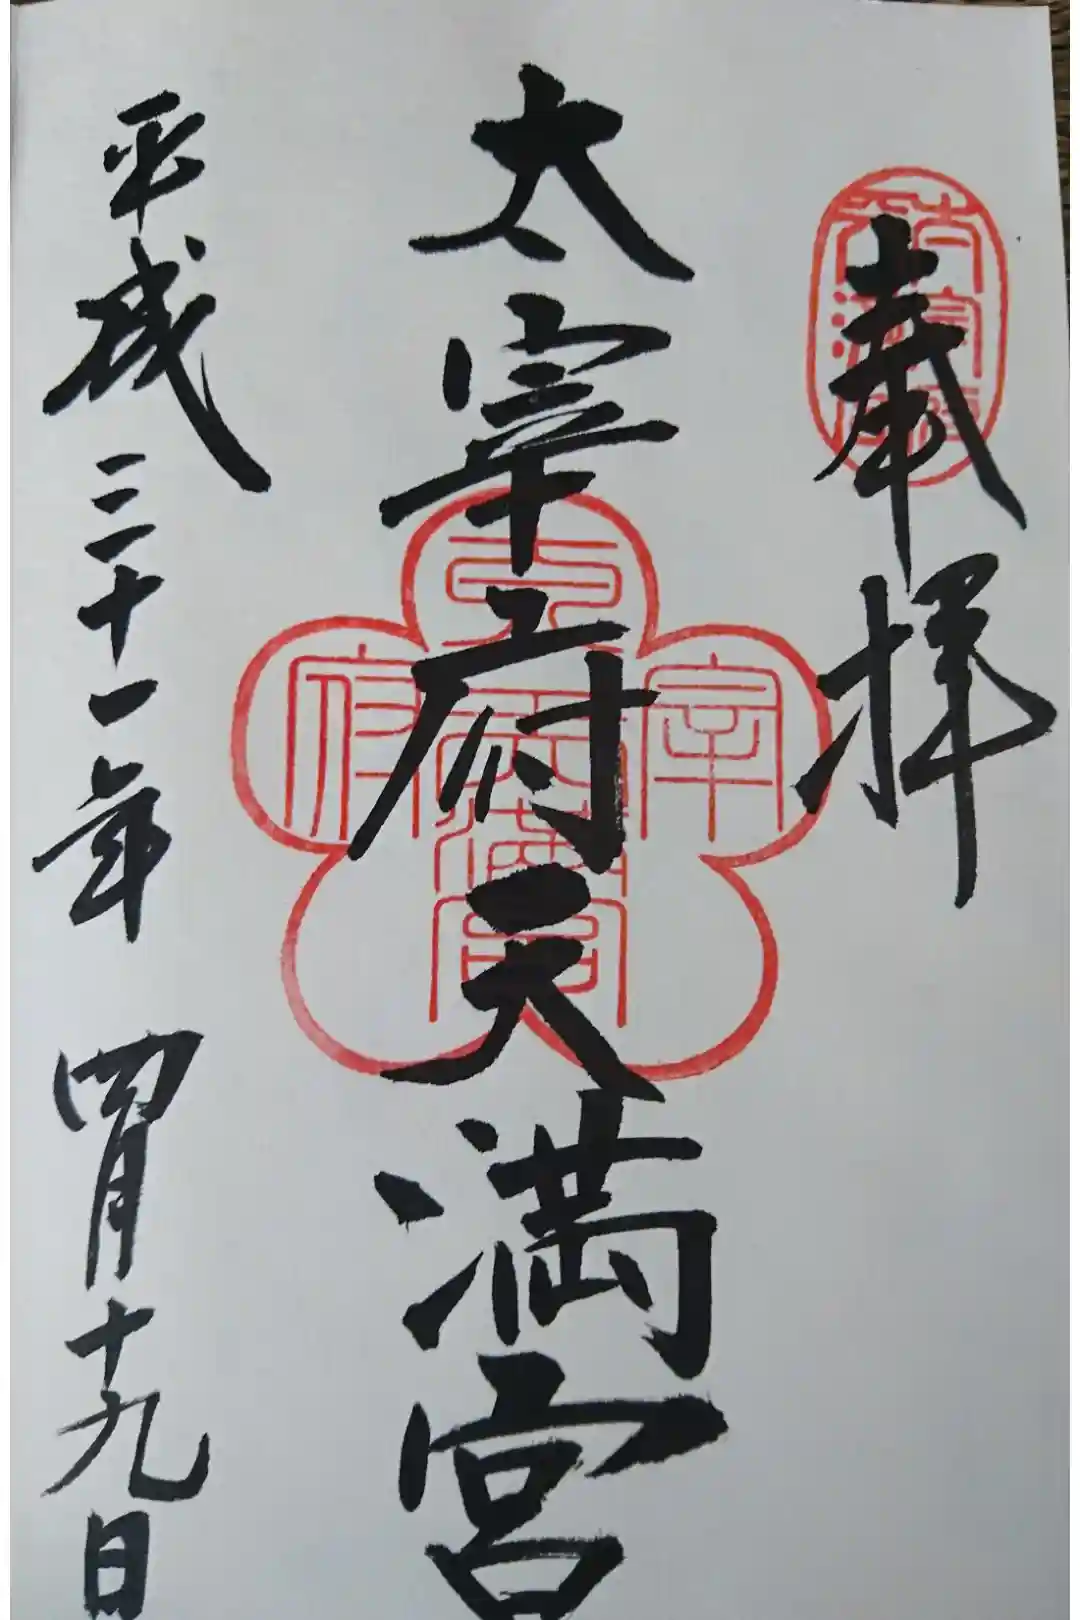 奉拝
太宰府天満宮
平成三十一年 四月十九日
太宰府天満宮